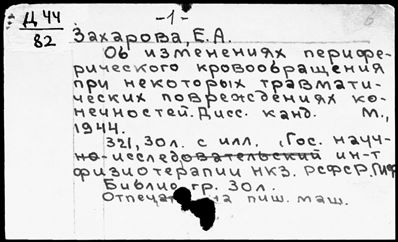 Д 44
82
-1-
Захарова, Е.А.
Об изменениях перифе-
рического кровообращения
при некоторых травмати-
ческих повреждениях ко-
нечностей. Дисс. канд. М.,
1944.
321, 30л. с илл. (Гос. науч-
но-исследовательский ин-т
физиотерапии НКЗ. РСФСР.
Библиогр. 30л.
на пиш. маш.